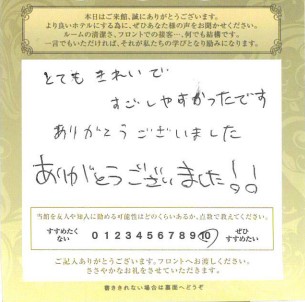 本日はご来館、誠にありがとうございます。
より良いホテルにする為に、ぜひあなた様の声をお聞かせください。
ルームの清潔さ、フロントでの接客…、何でも結構です。
一言でもいただければ、それが私たちの学びとなり励みになります。
とても きれいで
すごしやすかったです
ありがとうございました
ありがとうございました!!
当館を友人や知人に勧める可能性はどのくらいあるか、点数で教えてください。
すすめたくない 0 1 2 3 4 5 6 7 8 9 10 ぜひすすめたい
ご記入ありがとうございます。フロントへお渡しください。
ささやかなお礼をさせていただきます。
書ききれない場合は裏面へどうぞ